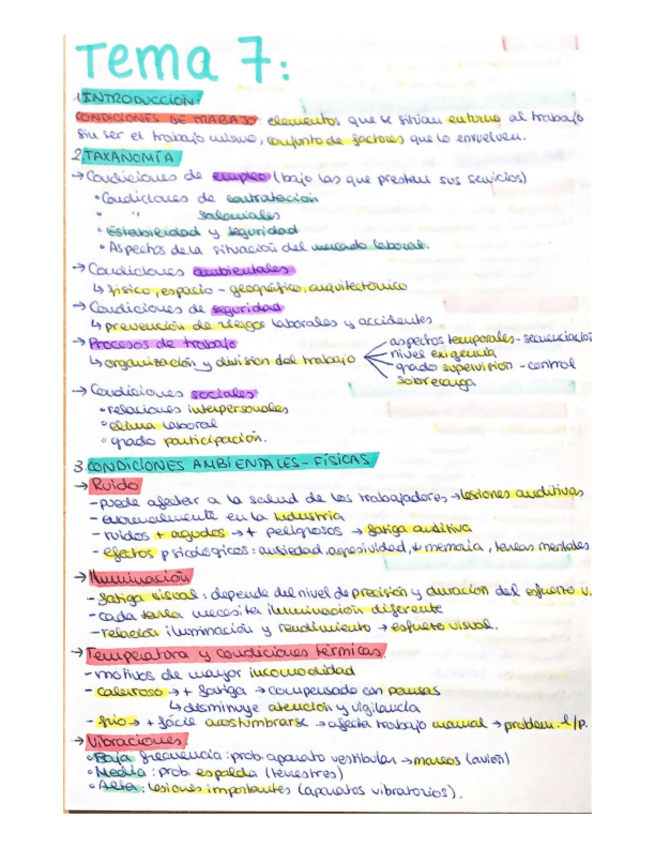 Tema 7:
1. INTRODUCCIÓN:
CONDICIONES DE TRABAJO: elementos que se sitúan entorno al trabajo
sin ser el trabajo mismo, conjunto de factores que lo envuelven.
2. TAXANOMÍA
→ Condiciones de empleo (bajo las que presten sus servicios)
• Condiciones de contratación
• " salariales
• Estabilidad y seguridad
• Aspectos de la situación del mercado laboral.
→ Condiciones ambientales
↳ físico, espacio - geográfico, arquitectónico
→ Condiciones de seguridad
↳ prevención de riesgos laborales y accidentes
→ Procesos de trabajo
↳ organización y división del trabajo
aspectos temporales - secuenciación
nivel exigencia
grado supervisión - control
sobrecarga
→ Condiciones sociales
• relaciones interpersonales
• clima laboral
• grado participación.
3. CONDICIONES AMBIENTALES - FÍSICAS
→ Ruido
- puede afectar a la salud de los trabajadores → lesiones auditivas
- en la industria
- ruidos + agudos → + peligrosos → fatiga auditiva
- efectos psicológicos: ansiedad, agresividad, ↓ memoria, tareas mentales
→ Iluminación
- fatiga visual: depende del nivel de precisión y duración del esfuerzo v.
- cada tarea necesita iluminación diferente
- relación iluminación y rendimiento → esfuerzo visual.
→ Temperatura y condiciones térmicas.
- motivos de mayor incomodidad
- caluroso → + fatiga → compensado con pausas
↳ disminuye atención y vigilancia
- frío → + fácil acostumbrarse → afecta trabajo manual → problem. l/p.
→ Vibraciones.
• Baja frecuencia: prob. aparato vestibular → mareos (avión)
• Media: prob. espalda (terrestres)
• Alta: lesiones importantes (aparatos vibratorios).